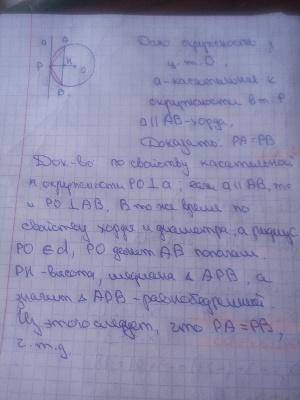 a A
P K O
B
Дано окружность,
ц. т. О.
а - касательная к
окружности в т. Р
a || AB - хорда.
Доказать: PA = PB
Док-во: по свойству касательной
к окружности PO ⊥ a; если a || AB, то
и PO ⊥ AB. В то же время по
свойству хорды и диаметра, а радиус
PO ∈ d, PO делит AB пополам.
PK - высота, медиана △ APB, а
значит △ APB - равнобедренный
Из этого следует, что PA = PB,
ч. т. д.